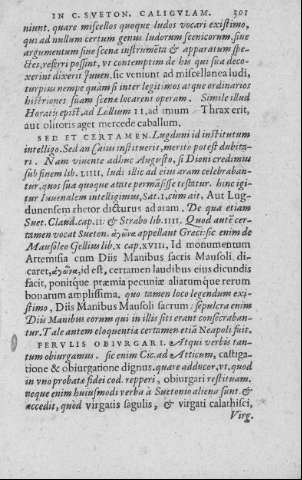 IN C. SVETON. CALIGVLAM. 301
niunt. quare miscellos quoque ludos vocari existimo,
qui ad nullum certum genus ludorum scenicorum, siue
argumentum siue scena instrumēta & apparatum spe-
ctes, referri possint, vt contemptim de his qui sua deco-
xerint dixerit Iuuen. sic veniunt ad miscellanea ludi,
turpius nempe quàm si inter legitimos atque ordinarios
histriones suam scena locarent operam. Simile illud
Horatij epist. ad Lollium II, ad imum Thrax erit,
aut olitoris aget mercede caballum.
SED ET CERTAMEN. Lugduni id institutum
intelligo. Sed an Caius instituerit, meritò potest dubita-
ri. Nam viuente adhuc Augusto, si Dioni credimus
sub finem lib. LIIII, ludi illic ad eius aram celebraban-
tur, quos sua quoque ætate permāsisse testatur. hinc igi-
tur Iuuenalem intelligimus, Sat. 1, cùm ait, Aut Lug-
dunensem rhetor dicturus ad aram. De qua etiam
Suet. Claud. cap. II: & Strabo lib. IIII. Quod autē cer-
tamen vocat Sueton. ἀγῶνα appellant Græci: sic enim de
Mausoleo Gellius lib. X cap. XVIII, Id monumentum
Artemisia cùm Diis Manibus sacris Mausoli di-
caret, ἀγῶνα, id est, certamen laudibus eius dicundis
facit, ponitque præmia pecuniæ aliarumque rerum
bonarum amplissima. quo tamen loco legendum exi-
stimo, Diis Manibus Mausoli sacrum: sepulcra enim
Diis Manibus eorum qui in illis siti erant consecraban-
tur. Tale autem eloquentiæ certamen etiā Neapoli fuit.
FERVLIS OBIVRGARI. Atqui verbis tan-
tùm obiurgamus. sic enim Cic. ad Atticum, castiga-
tione & obiurgatione dignus. quare adducor, vt, quod
in vno probatæ fidei cod. repperi, obiurigari restituam.
neque enim huiusmodi verba à Suetonio aliena sunt. &
accedit, quòd virgatis sagulis, & virgati calathisci,
Virg.